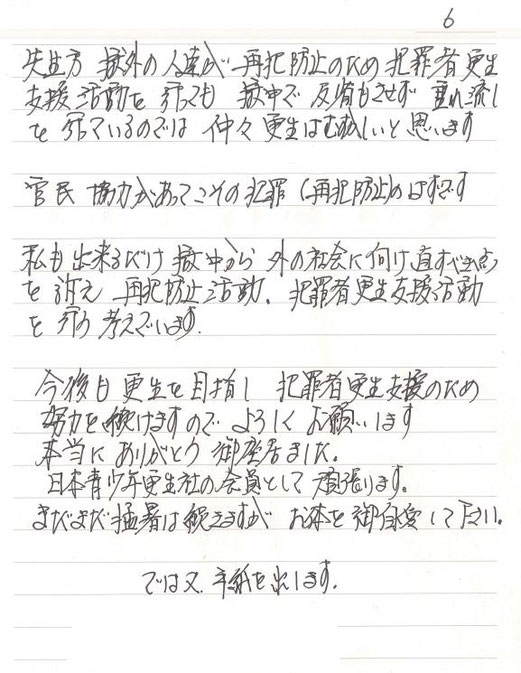 6
先生方 獄外の人達が 再犯防止のため 犯罪者更生
支援活動を 行っても 獄中で 反省もさせず 垂れ流し
を 行っているのでは 仲々 更生はむずかしいと思います
官民 協力があってこその犯罪 (再犯防止)のはずです
私も出来るだけ 獄中から 外の社会に向け 直すべき点
を 訴え 再犯防止活動、犯罪者更生支援活動
を 行う 考えでいます.
今後も 更生を目指し 犯罪者更生支援のため
努力を続けますので よろしく お願いします
本当に ありがとう 御座居ました。
日本青少年更生社の会員として 頑張ります。
まだまだ猛暑は続きますが お体を御自愛して下さい。
では又、手紙を出します.